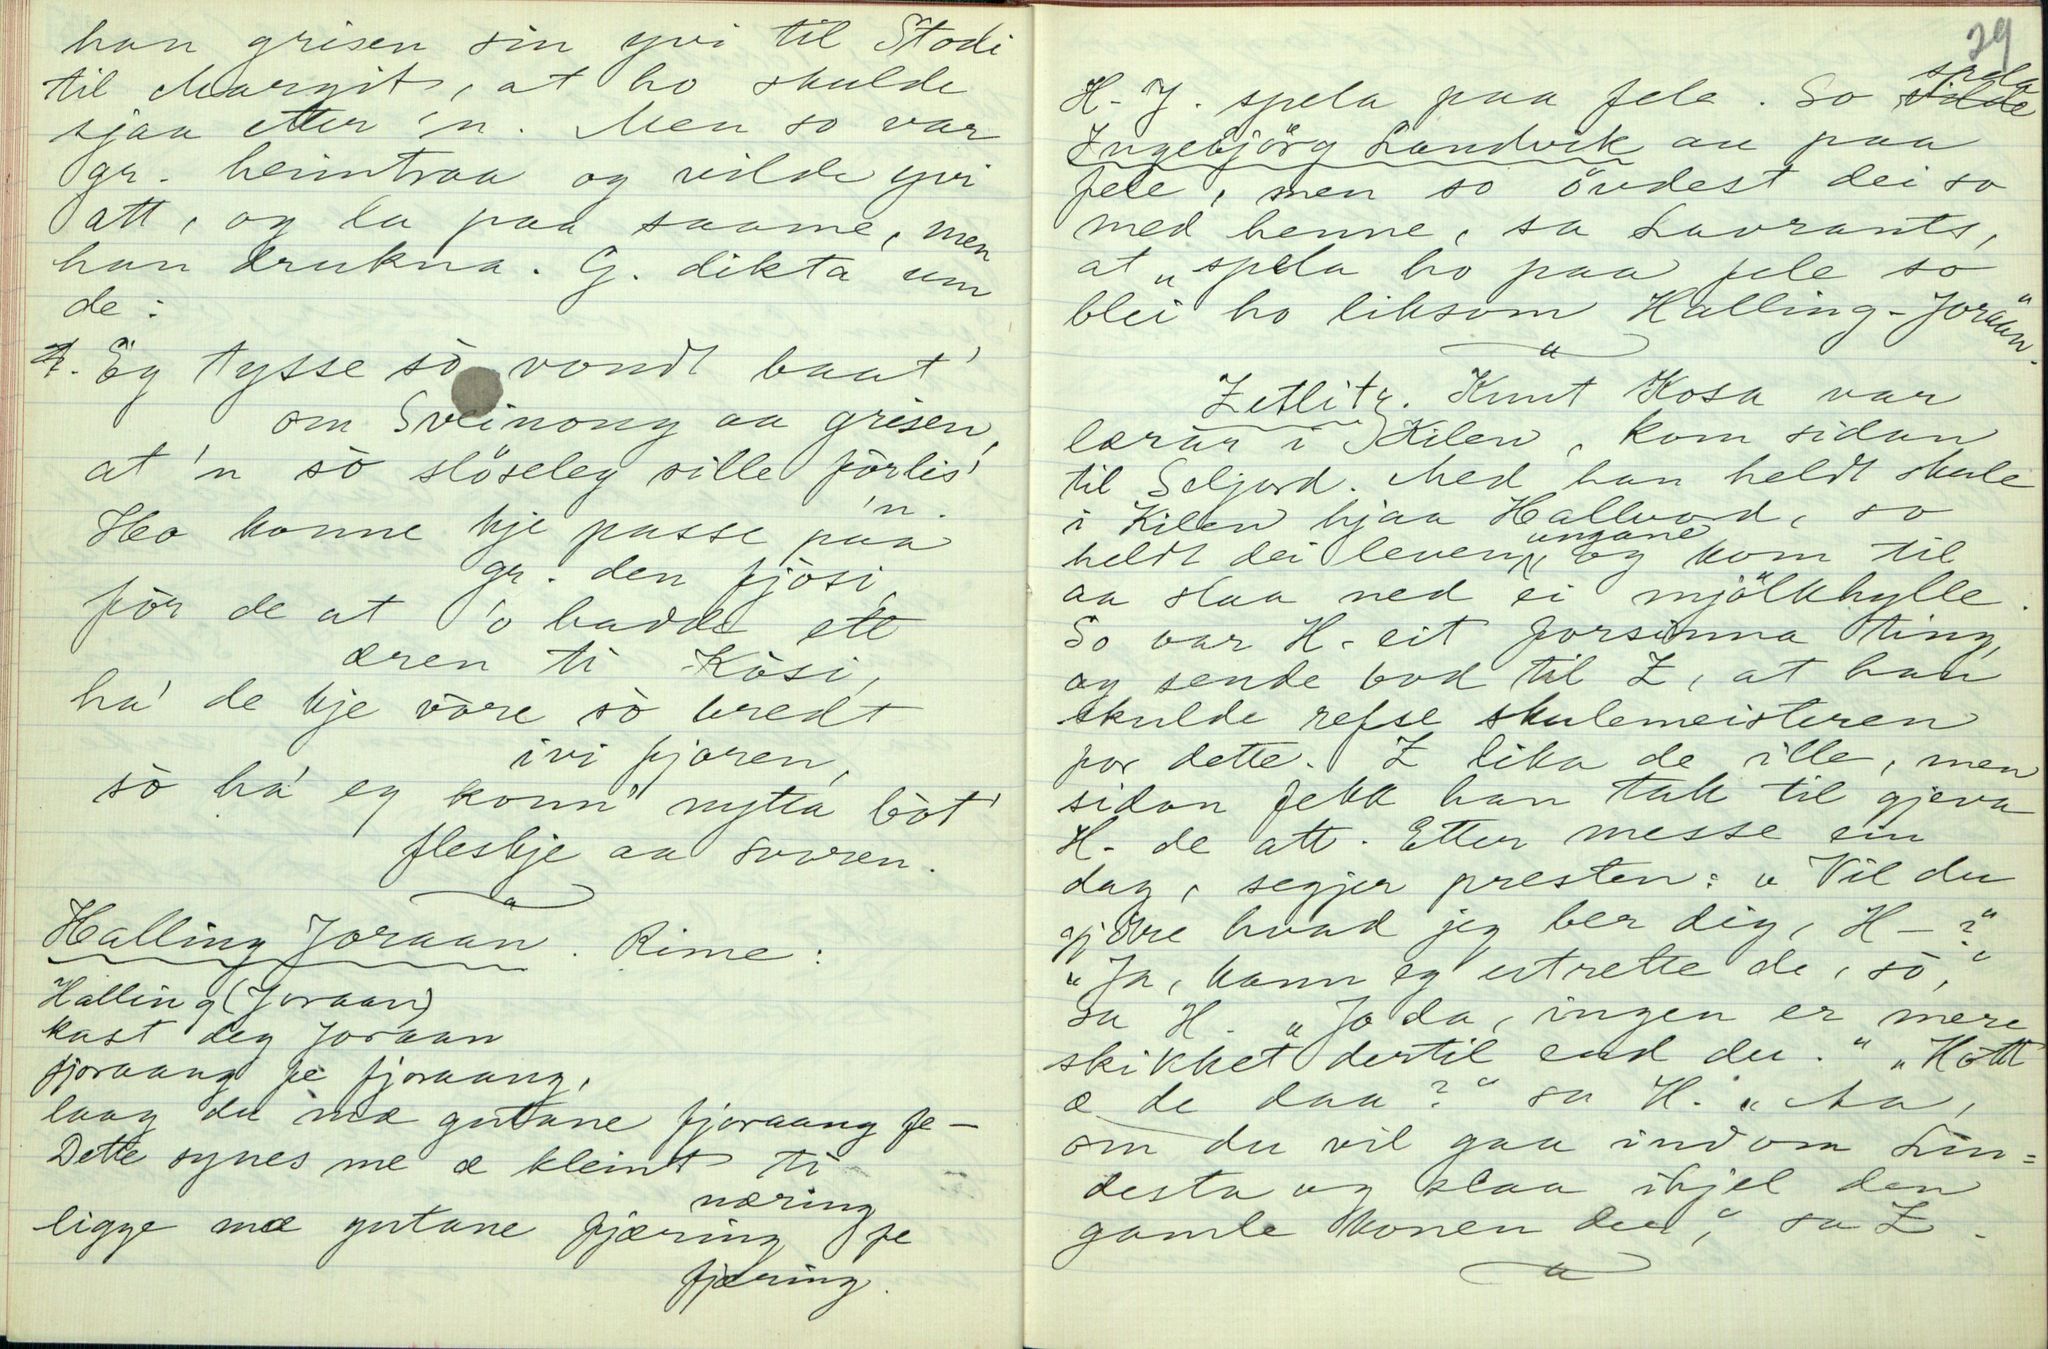 han grisen sin yvi til Stodi
til Margit, at ho skulde
sjaa etter 'n. Men so var
gr. heimtraa og vilde yvi
att, og la paa saame, men
han drukna. G. dikta um
de:
Eg tysse sò vondt baat'
om Sveinong aa grisen,
at 'n sò slöseleg sille förlis'
'n.
Ho konne kje passe paa
gr. den fjösi,
för de at 'o hadde ett
æren ti Kåsi,
ha' de kje vöre sò bredt
ivi fjoren,
sò ha' eg konn' nytta bòt'
fleskje aa svoren.
Halling Joraan. Rime:
Halling (Joraan)
kast deg Joraan
fjoraang fe fjoraang,
laag du mæ gutane fjoraang fe –
Dette synes me æ kleint ti
næring
ligge mæ gutane fjæring fe
fjæring.
29
H-J. spela paa fele. So spela
Ingebjörg Landvik au paa
fele, men so övdest dei so
med henne, sa Lavrants,
at „spela ho paa fele so
blei ho liksom Halling-Joraan".
Zetlitz. Knut Kosa var
lærar i Kilen, kom sidan
til Seljord. Med han heldt skule
i Kilen hjaa Hallvod, so
heldt dei leven, ungane og kom til
aa slaa ned ei mjölkhylle.
So var H. eit forsinna ting,
og sende bod til Z, at han
skulde refse skulemeisteren
for dette. Z lika de ille, men
sidan fekk han tak til gjeva
H. de att. Etter messe ein
dag, segjer presten: „Vil du
gjöre hvad jeg ber dig, H –?"
„Ja, kann eg utrette de, sò,"
sa H. „Jo da, ingen er mere
skikket dertil end du." „Hòtt
æ de daa?" sa H. „Aa,
om du vil gaa indom Lin=
desta og slaa ihjel den
gamle konen der," sa Z.